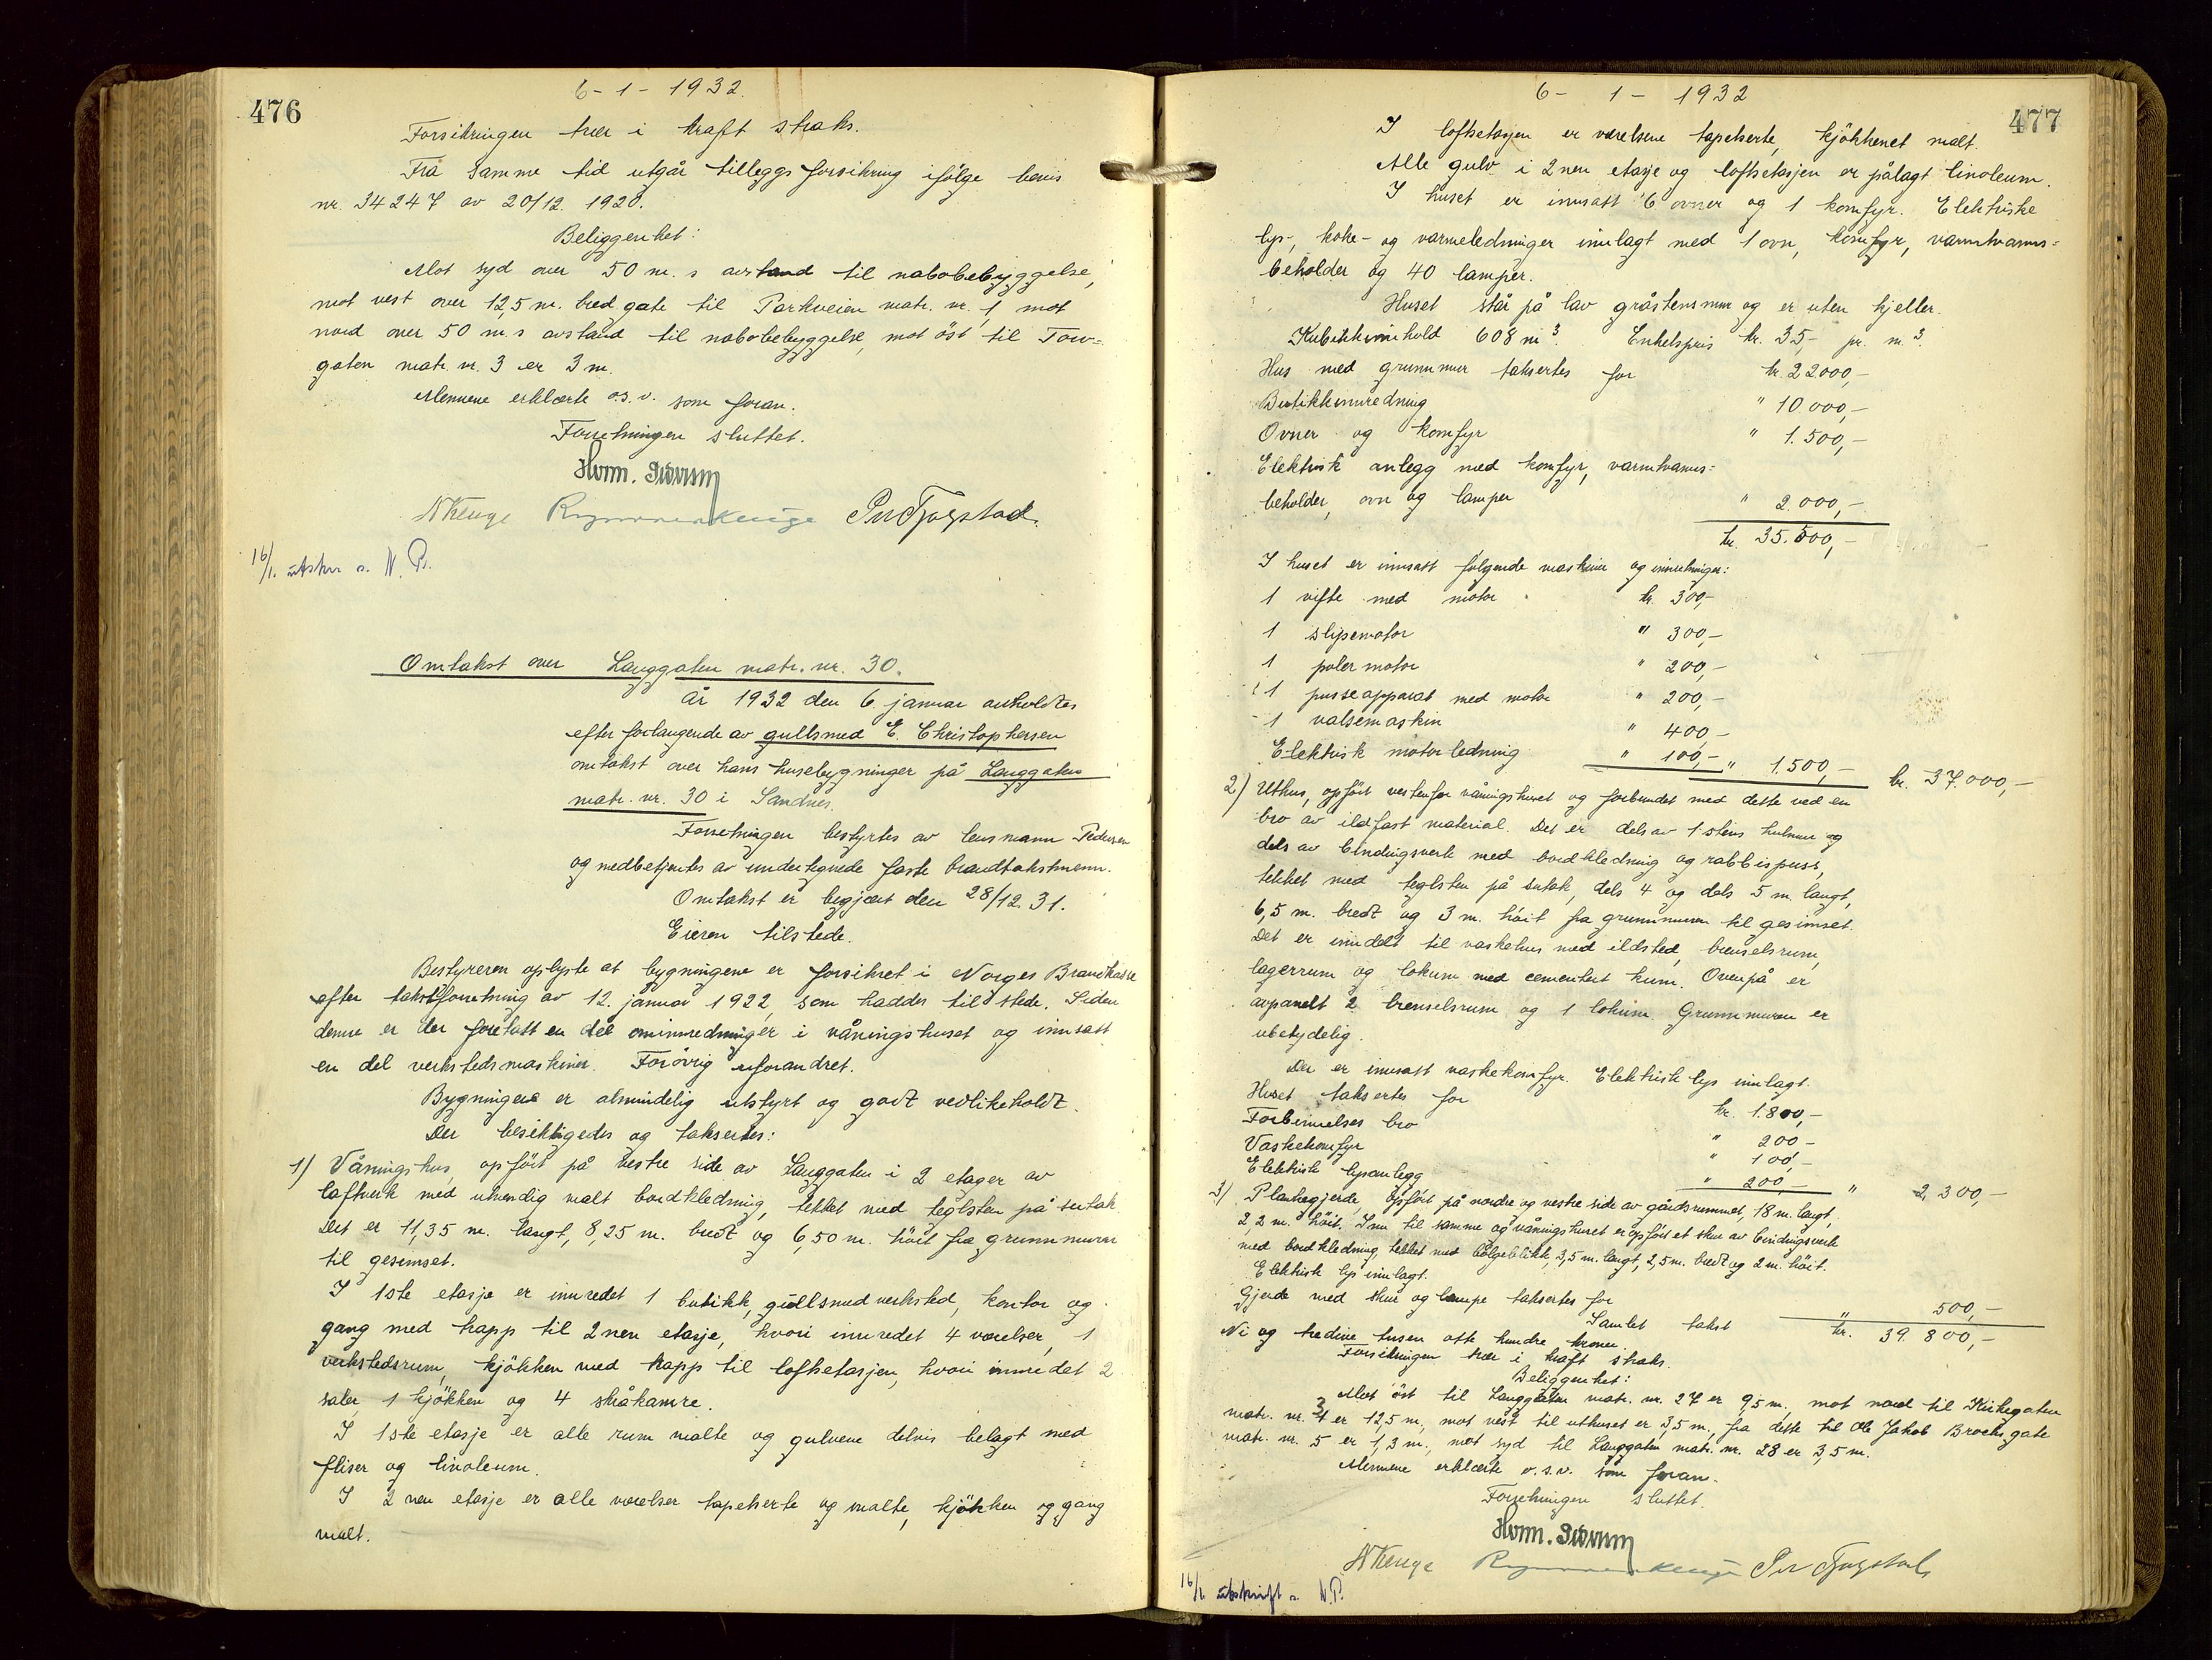 476
6 - 1 - 1932.
Forsikringen trær i kraft straks.
Fra samme tid utgår tilleggsforsikring ifølge bevis
nr. 34247 av 20/12. 1920.
Beliggenhet:
Mot syd over 50 m.s avstand til nabobebyggelse,
mot vest over 12,5 m. bred gate til Parkveien matr. nr. 1, mot
nord over 50 m.s avstand til nabobebyggelse, mot öst til Torv=
gaten matr. nr. 3 er 3 m.
Mennene erklærte o.s.v. som foran.
Forretningen sluttet.
N Kenge Per Tjogstad.
16/1. utskr. s. N. B.
Omtakst over Langgaten matr. nr. 30.
År 1932 den 6. januar avholdtes
efter forlangende av gullsmed E. Christophersen
omtakst over hans husebygninger på Langgaten
matr. nr. 30 i Sandnes.
Forretningen bestyrtes av lensmann Pedersen
og medbetjentes av undertegnede faste brandtakstmenn.
Omtakst er begjært den 28/12. 31.
Eieren tilstede.
Bestyreren oplyste at bygningene er forsikret i Norges Brandkasse
efter takstforretning av 12. januar 1922, som haddes tilstede. Siden
denne er der foretatt en del ominnredninger i våningshuset og innsatt
en del verkstedsmaskiner. Forövrig uforandret.
Bygningene er almindelig utstyrt og godt vedlikeholdt.
Der besiktigedes og taksertes:
1) Våningshus, opfört på vestre side av Langgaten i 2 etager av
laftverk med utvendig malt bordkledning, tekket med teglsten på sutak.
Det er 11,35 m. langt, 8,25 m. bredt og 6,50 m. höit fra grunnmuren
til gesimset.
I 1ste etasje er innredet 1 butikk, gullsmedverksted, kontor og
gang med trapp til 2nen etasje, hvori innredet 4 værelser, 1
verkstedsrum, kjökken med trapp til loftsetasjen, hvori innredet 2
saler, 1 kjökken og 4 skråkamre.
I 1ste etasje er alle rum malte og gulvene delvis belagt med
fliser og linoleum.
I 2nen etasje er alle værelser tapetserte og malte, kjökken og gang
malt.
477
6 - 1 - 1932
I loftsetasjen er værelsene tapetserte, kjökkenet malt.
Alle gulv i 2nen etasje og loftsetasjen er pålagt linoleum.
I huset er innsatt 6 ovner og 1 komfyr. Elektriske
lys-, koke- og varmeledninger innlagt med 1 ovn, komfyr, varmtvanns=
beholder og 40 lamper.
Huset står på lav gråstensmur og er uten kjeller.
Kubikkinnhold 608 m³. Enhetspris kr. 35,- pr. m³.
Hus med grunnmur taksertes for kr. 22000,-
Butikkinnredning " 10.000,-
Ovner og komfyr " 1.500,-
Elektrisk anlegg med komfyr, varmtvanns=
beholder, ovn og lamper " 2.000,-
kr. 35.500,-
I huset er innsatt følgende maskiner og innretninger:
1 vifte med motor kr. 300,-
1 slipemotor " 300,-
1 polermotor " 200,-
1 pusseapparat med motor " 200,-
1 valsemaskin " 400 -
Elektrisk motorledning " 100,- " 1.500,- kr. 37.000,-
2) Uthus, opfört vestenfor våningshuset og forbundet med dette ved en
bro av ildfast material. Det er dels av 1 stens hulmur og
dels av bindingsverk med bordkledning og rabbispuss,
tekket med teglsten på sutak, dels 4 og dels 5 m. langt,
6,5 m. bredt og 3 m. höit fra grunnmuren til gesimset.
Det er inndelt til vaskehus med ildsted, brenselsrum,
lagerrum og lokum med cementert kum. Ovenpå er
avpanelt 2 brenselsrum og 1 lokum. Grunnmuren er
ubetydelig.
Der er innsatt vaskekomfyr. Elektrisk lys innlagt.
Huset taksertes for kr. 1.800,-
Forbinnelses bro " 200 -
Vaskekomfyr " 100,-
Elektrisk lysanlegg " 200,- " 2.300,-
3) Plankegjerde, opfört på nordre og vestre side av gårdsrummet, 18 m. langt,
2,2 m. höit. Inn til samme og våningshuset er opfört et skur av bindingsverk
med bordkledning, tekket med bölgeblikk, 3,5 m. langt, 2,5 m. bredt og 2 m. höit.
Elektrisk lys innlagt.
Gjerde med skur og lampe taksertes for " 500,-
Samlet takst kr. 39 800,-
Ni og tredive tusen otte hundre kroner.
Forsikringen trær i kraft straks.
Beliggenhet:
Mot öst til Langgaten matr. nr. 27 er 9,5 m., mot nord til Kirkegaten
matr. nr. 3 er 12,5 m., mot vest til uthuset er 3,5 m., fra dette til Ole Jakob Brochs gate
matr. nr. 5 er 1,3 m., mot syd til Langgaten matr. nr. 28 er 3,5 m.
Mennene erklærte o.s.v. som foran.
Forretningen sluttet.
N Kenge Per Tjogstad
16/1. utskrift s. N.P.